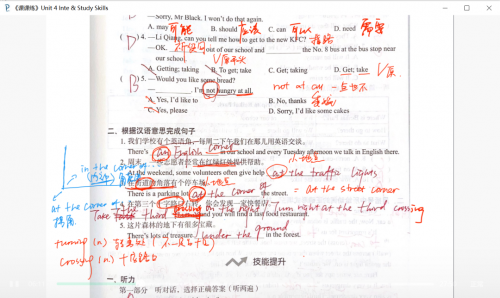 《课课练》Unit 4 Inte & Study Skills
—Sorry, Mr Black. I won't do that again.
A. may 可能 B. should 应该 C. can 可以 D. need 需要
(D) 4. —Li Qiang, can you tell me how to get to the new KFC? 指路
—OK. out of our school and the No. 8 bus at the bus stop near
our school.
A. Getting; taking B. To get; take C. Get; taking D. Get; take V原
(B) 5. —Would you like some bread?
not at all 一点也不
—______. I'm not hungry at all.
A. Yes, I'd like to B. No, thanks
C. Yes, please D. Sorry, I'd like some cakes
二、根据汉语意思完成句子
1. 我们学校有个英语角,每周二下午我们在那儿用英语交谈。
There's an English corner in our school and every Tuesday afternoon we talk in English there.
in the corner of
2. 周末,一些志愿者经常在红绿灯处提供帮助。 小地点
At the weekend, some volunteers often give help at the traffic lights.
3. 在街道的角落有个停车场。
There is a parking lot at the corner of the street. = at the street corner
at the corner of
4. 在第三个十字路口右转,你会发现一家快餐店。
Take the third turning on the right and you will find a fast food restaurant. Turn right at the third crossing
5. 这片森林的地下有很多宝藏。
There's lots of treasure under the ground in the forest.
turning (n)
crossing (n) 十字路口
技能提升
一、听力
第一部分 听对话,选择正确答案(听两遍)